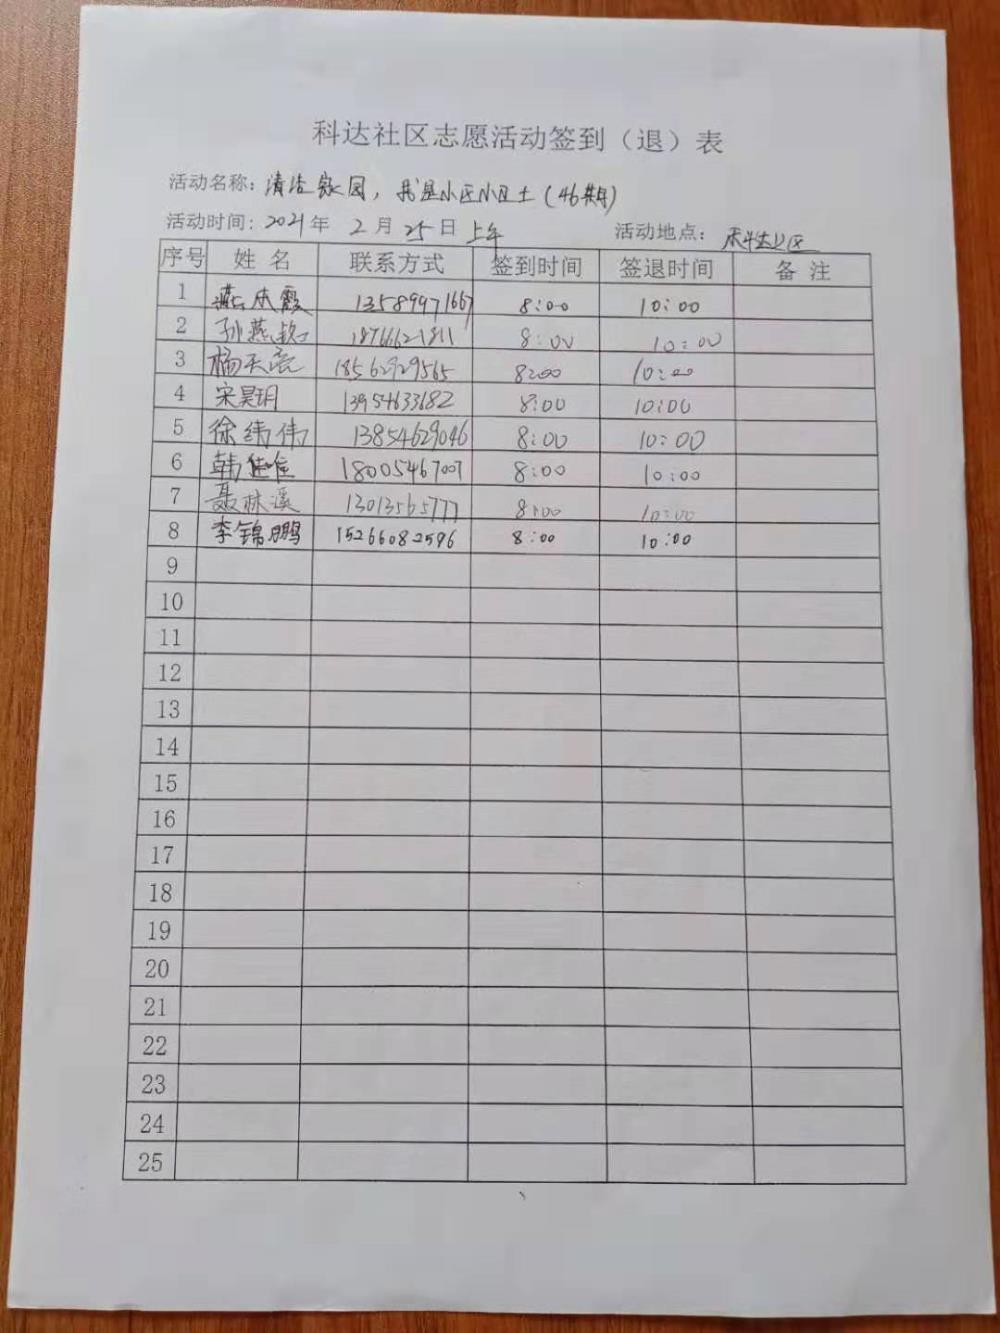 科达社区志愿活动签到（退）表
活动名称：清洁家园，我是小区小卫士（46期）
活动时间：2021年 2月 25日 上午 活动地点：科达社区
序号 姓名 联系方式 签到时间 签退时间 备注
1 燕本霞 13589971667 8:00 10:00
2 孙燕 18766621811 8:00 10:00
3 杨天亮 18562929565 8:00 10:00
4 宋昊玥 13954633682 8:00 10:00
5 徐纬伟 13854629046 8:00 10:00
6 韩佳 18005467007 8:00 10:00
7 聂林溪 13013565777 8:00 10:00
8 李锦鹏 15266082596 8:00 10:00
9
10
11
12
13
14
15
16
17
18
19
20
21
22
23
24
25